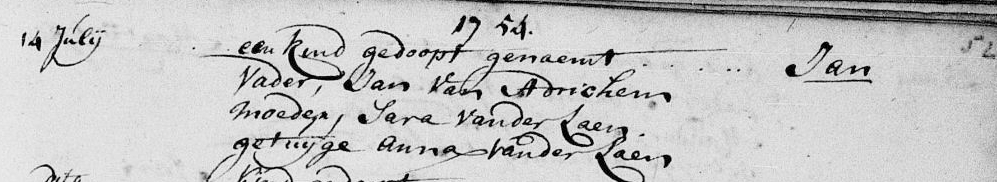 1754.
14 July een kind gedoopt genaemt . . . . . . Jan
Vader, Jan Van Adrichem
moeder, Sara Vander Laen.
getuijge Anna Vander Laen